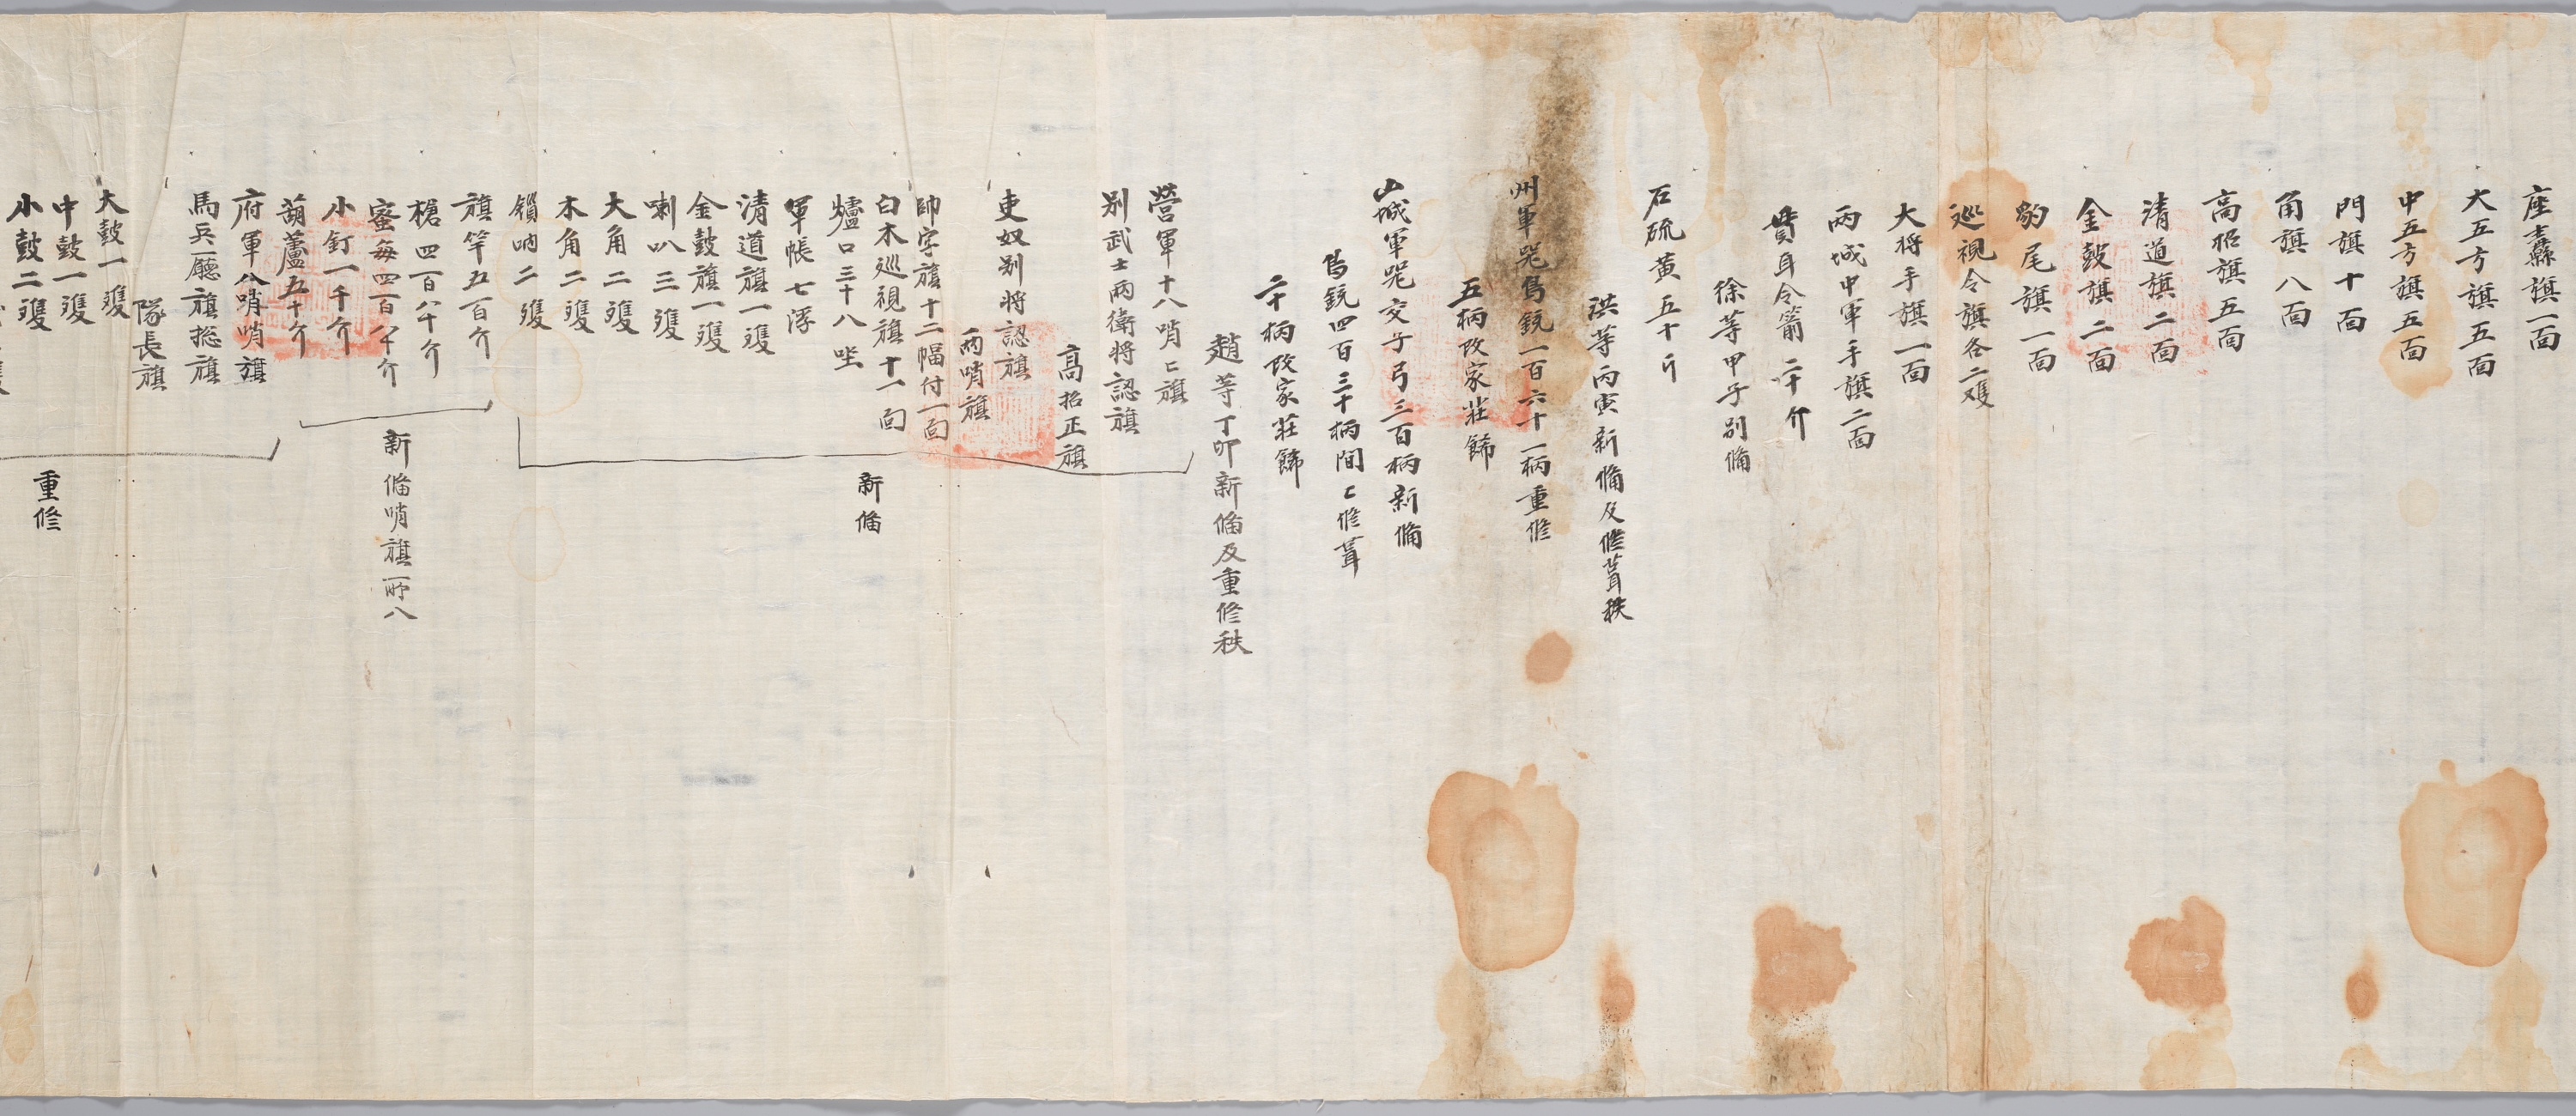 座纛旗一面
大五方旗五面
中五方旗五面
門旗十面
角旗八面
高招旗五面
清道旗二面
金鼓旗二面
豹尾旗一面
巡視令旗各二䨇
大將手旗一面
兩城中軍手旗二面
貫耳令箭二十介
徐等甲子別俻
石硫黃五十斤
洪等丙寅新俻及修葺秩
州軍器鳥銃一百六十一柄重修
五柄改家莊餙
山城軍器交子弓三百柄新俻
鳥銃四百三十柄間〻修葺
二十柄改家莊餙
趙等丁卯新俻及重修秩
營軍十八哨〻旗
別武士兩衛將認旗
高招正旗
吏奴別將認旗
兩哨旗
帥字旗十二幅付一面
白木巡視旗十一面
爐口三十八坐
軍帳七浮
清道旗一䨇
金鼓旗一䨇
喇叭三䨇
大角二䨇
木角二䨇
鎖吶二䨇
新俻
旗竿五百介
槍四百八十介
蜜每四百八十介
小釘一千介
葫蘆五十介
新俻哨旗所八
府軍八哨哨旗
馬兵二廳旗摠旗
隊長旗
大鼓一䨇
中鼓一䨇
小鼓二䨇
重修